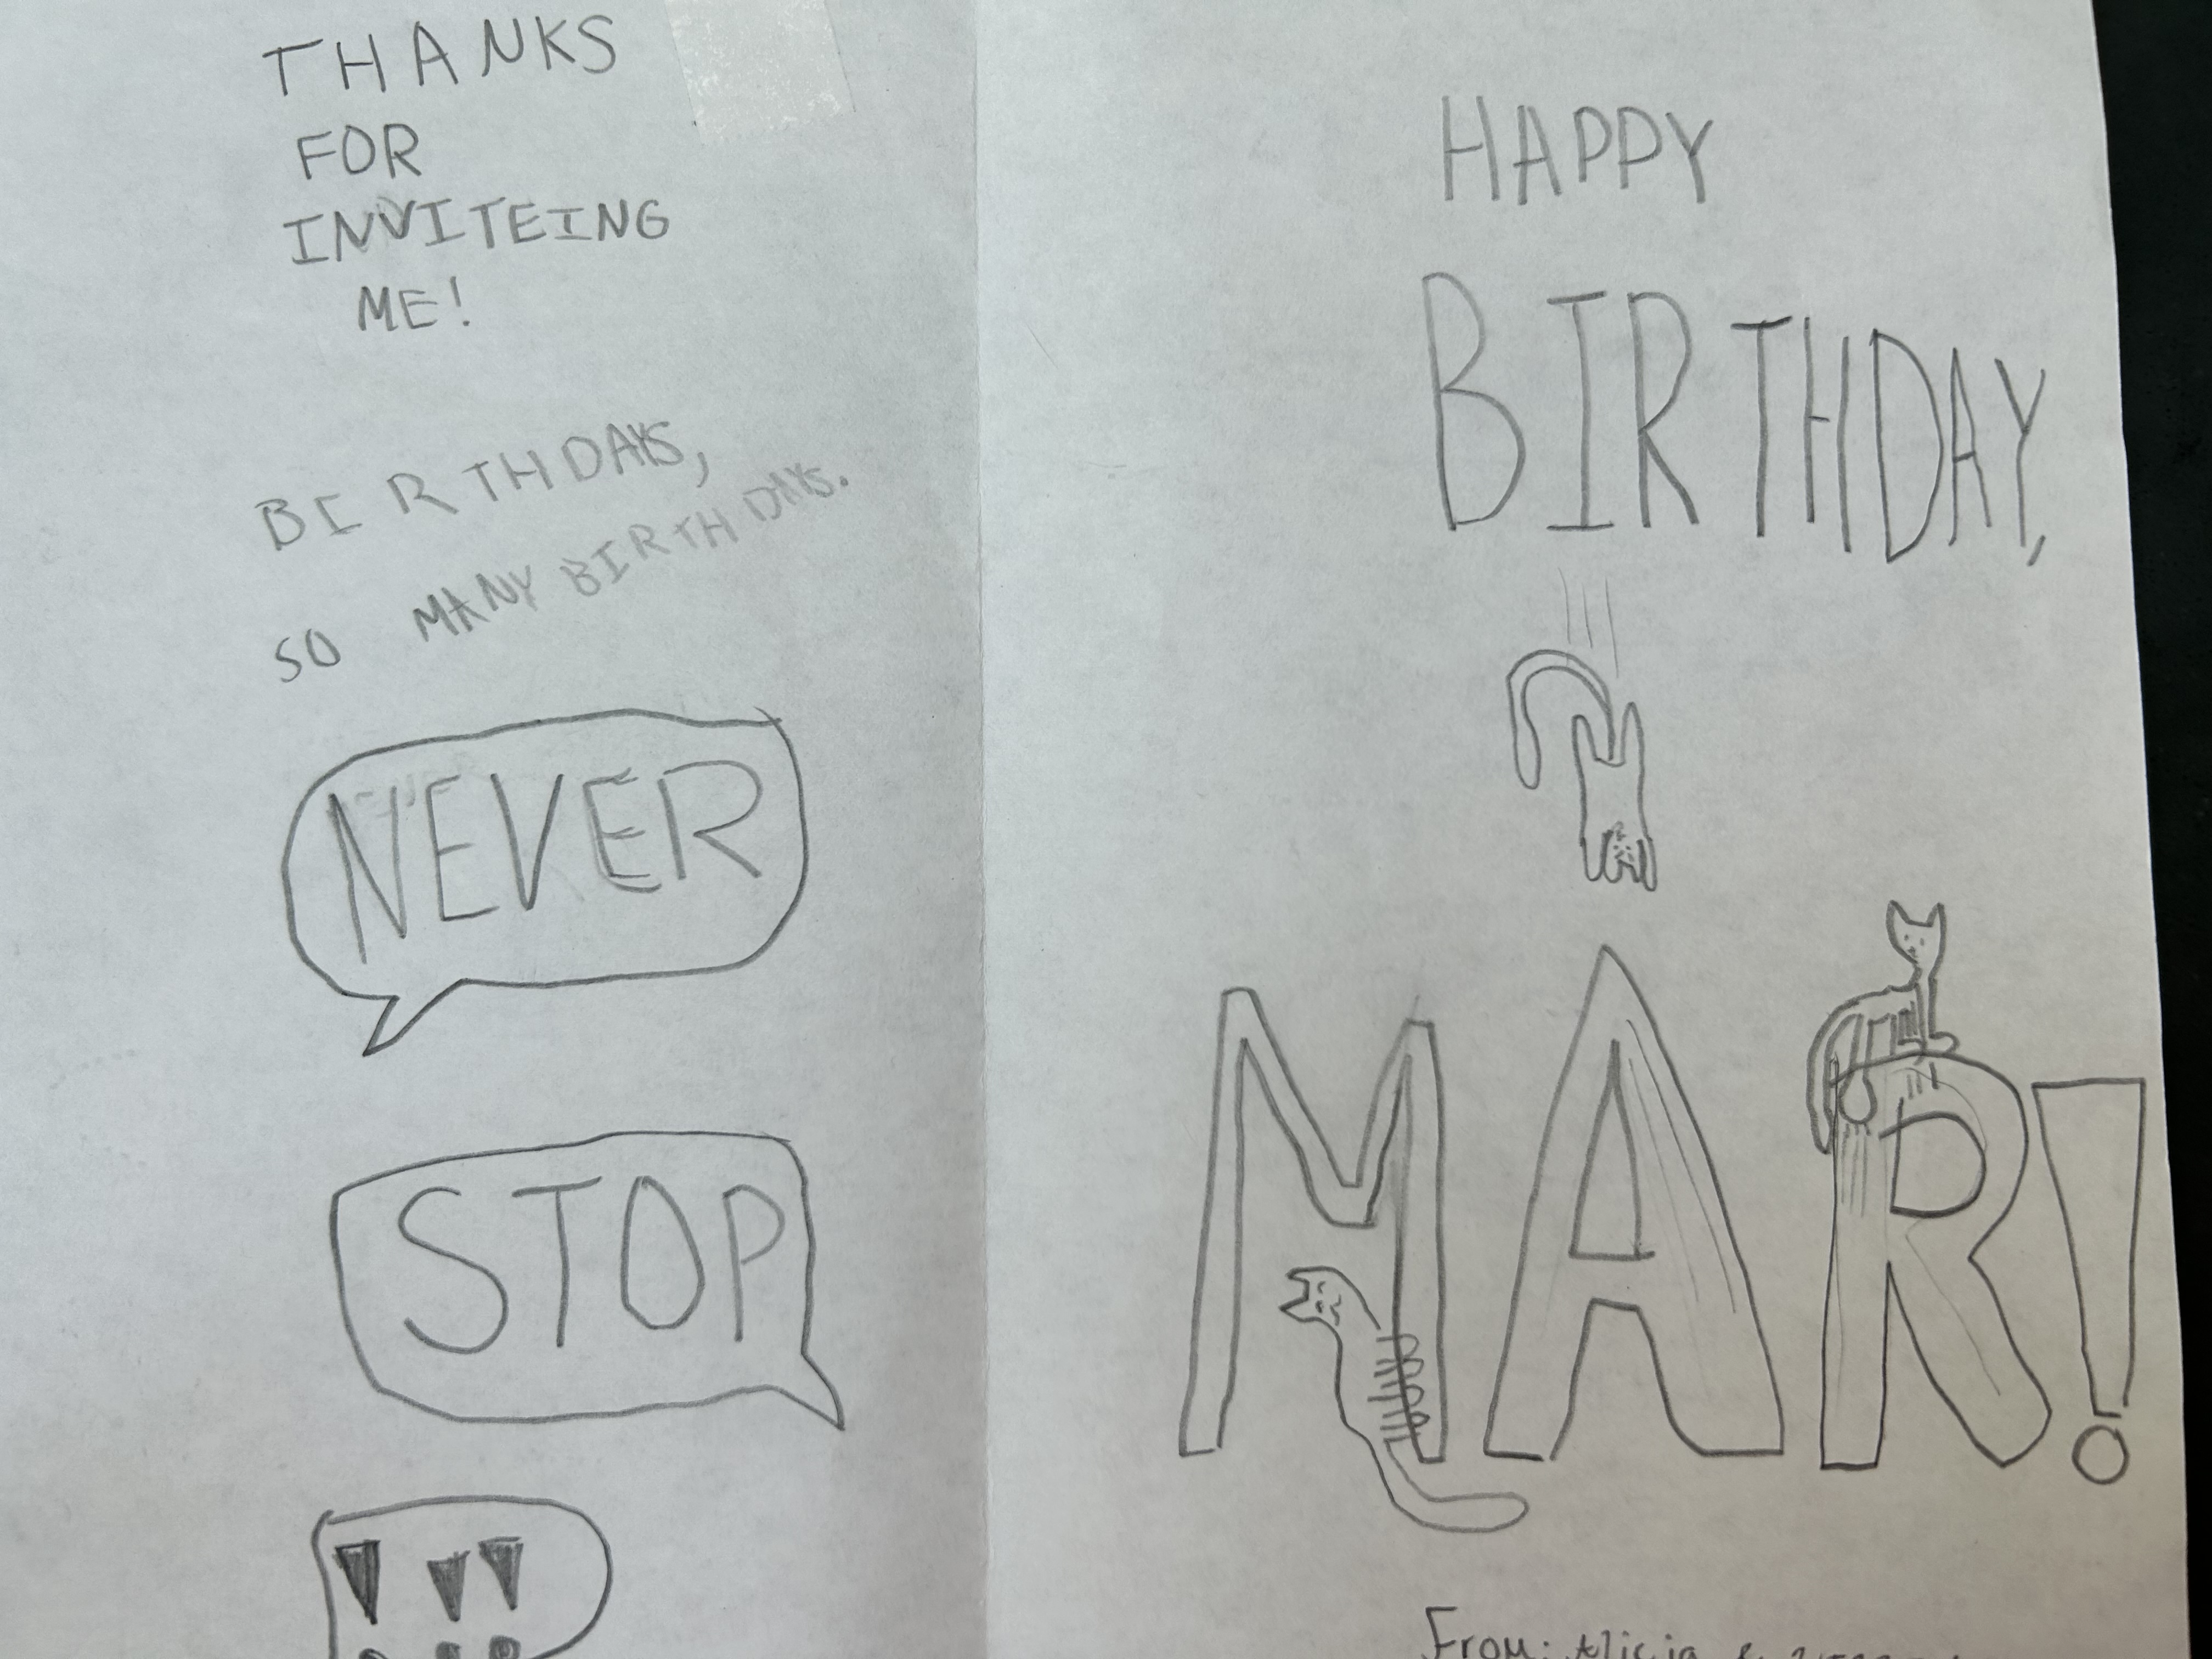 THANKS
FOR
INVITEING
ME!
BIRTHDAYS,
SO MANY BIRTHDAYS.
NEVER
STOP
!!!
HAPPY
BIRTHDAY,
MAR!
From: Alicia &